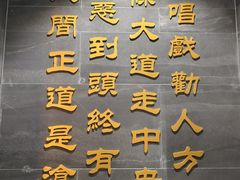 唱戲勸人方
條大道走中央
惡到頭終有
間正道是滄